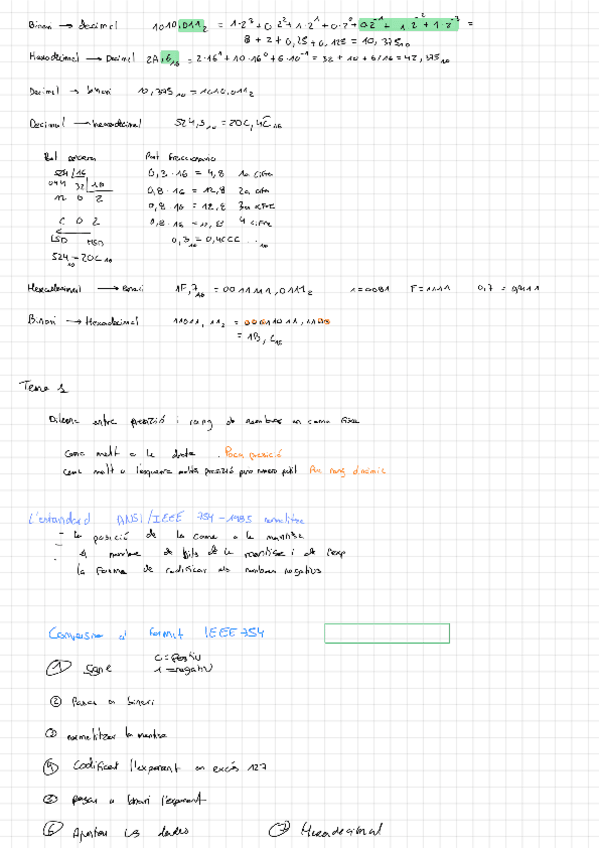 Binari → decimal 1010,011₂ = 1·2³+0·2²+1·2¹+0·2⁰+0·2⁻¹+1·2⁻²+1·2⁻³ =
8 + 2 + 0,25 + 0,125 = 10,375₁₀
Hexadecimal → Decimal 2A,6₁₆ = 2·16¹+10·16⁰+6·16⁻¹ = 32 + 10 + 6/16 = 42,375₁₀
Decimal → binari 10,375₁₀ = 1010,011₂
Decimal → hexadecimal 524,3₁₀ = 20C,4C₁₆
Part sencera Part fraccionaria
524 |16 0,3·16 = 4,8 1a cifra
044 32 |16 0,8·16 = 12,8 2a cifra
12 0 2 0,8·16 = 12,8 3a cifra
0,8·16 = 12,8 4 cifra
C 0 2
LSD MSD 0,3₁₀ = 0,4CCC...₁₆
524₁₀ = 20C₁₆
Hexadecimal → Binari 1F,7₁₆ = 0011111,0111₂ F=1111
Binari → Hexadecimal 11011,11₂ = 00011011,1100
= 1B,C₁₆
Tema 1
entre precisió i rang de nombres en coma fixa
coma molt a la dreta. Poca precisió
coma molt a l'esquerra molta precisió pero Poc rang dinàmic
L'estandard ANSI/IEEE 754-1985 normalitza
- la posició de la coma a la mantisa
- el nombre de bits de la mantisa i de l'exp
- la forma de codificar els nombres negatius
Conversió al format IEEE 754
① Signe 0=Positiu
1=negatiu
② Passar a binari
③ normalitzar la mantisa
④ Codificar l'exponent en excés 127
⑤ passar a binari l'exponent
⑥ Ajuntar les dades ⑦ Hexadecimal